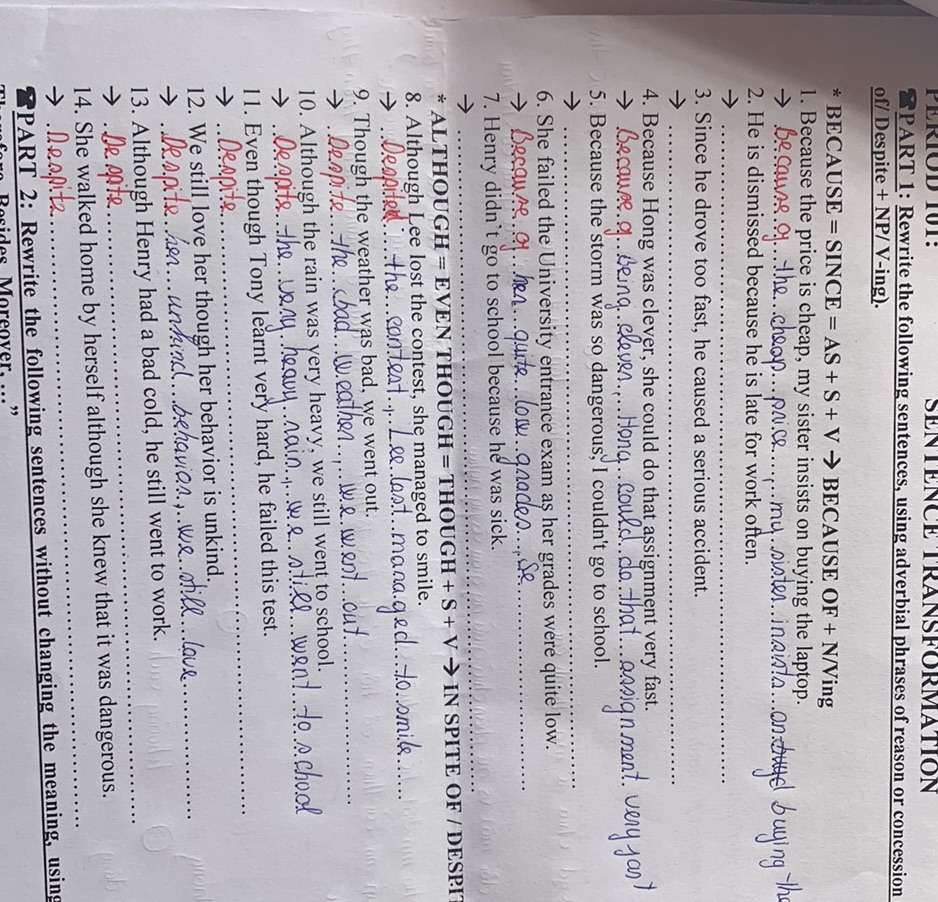 PERIOD 101: SENTENCE TRANSFORMATION
☎PART 1: Rewrite the following sentences, using adverbial phrases of reason or concession
of/ Despite + NP/ V-ing).
* BECAUSE = SINCE = AS + S + V → BECAUSE OF + N/Ving
1. Because the price is cheap, my sister insists on buying the laptop.
→ Because of the cheap price, my sister insists on buying the
2. He is dismissed because he is late for work often.
→
3. Since he drove too fast, he caused a serious accident.
→
4. Because Hong was clever, she could do that assignment very fast.
→ Because of being clever, Hong could do that assignment very fast
5. Because the storm was so dangerous, I couldn't go to school.
→
6. She failed the University entrance exam as her grades were quite low.
→ Because of her quite low grades, Se
7. Henry didn't go to school because he was sick.
→
* ALTHOUGH = EVEN THOUGH = THOUGH + S + V→ IN SPITE OF / DESPIT
8. Although Lee lost the contest, she managed to smile.
→ Despited the contest, Lee last managed to smile
9. Though the weather was bad, we went out.
→ Despite the bad weather, we went out
10. Although the rain was very heavy, we still went to school.
→ Despite the very heavy rain, we still went to school
11. Even though Tony learnt very hard, he failed this test.
→ Despite
12. We still love her though her behavior is unkind.
→ Despite her unkind behavior, we still love
13. Although Henry had a bad cold, he still went to work.
→ Despite
14. She walked home by herself although she knew that it was dangerous.
→ Despite
☎PART 2: Rewrite the following sentences without changing the meaning, using
Therefore, Besides, Moreover,…”